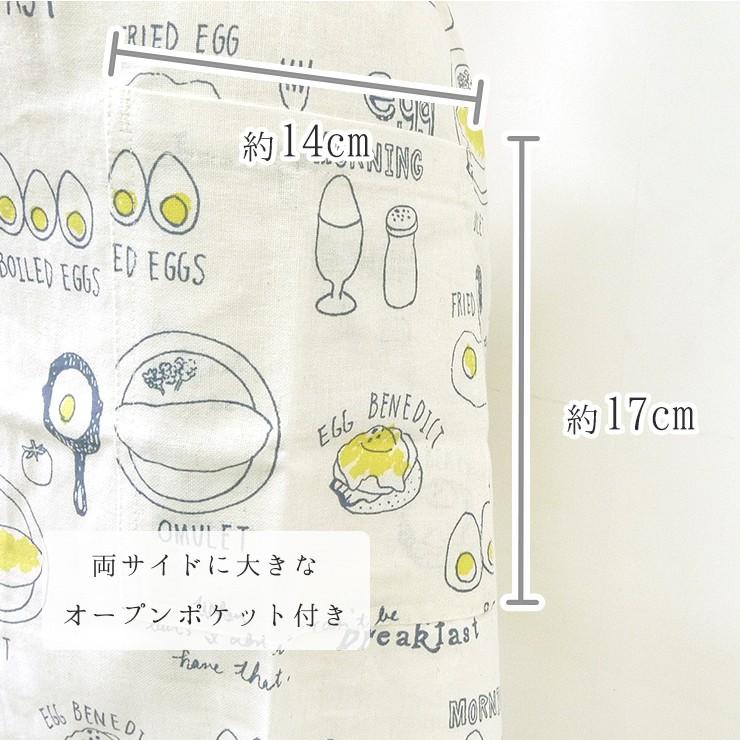 FRIED EGG
egg
約14cm
MORNING
BOILED EGGS
ED EGGS
FRIED
約17cm
EGG BENEDICT
OMULET
両サイドに大きな
オープンポケット付き
be
breakfast
have that
EGG BENEDI
MORNI